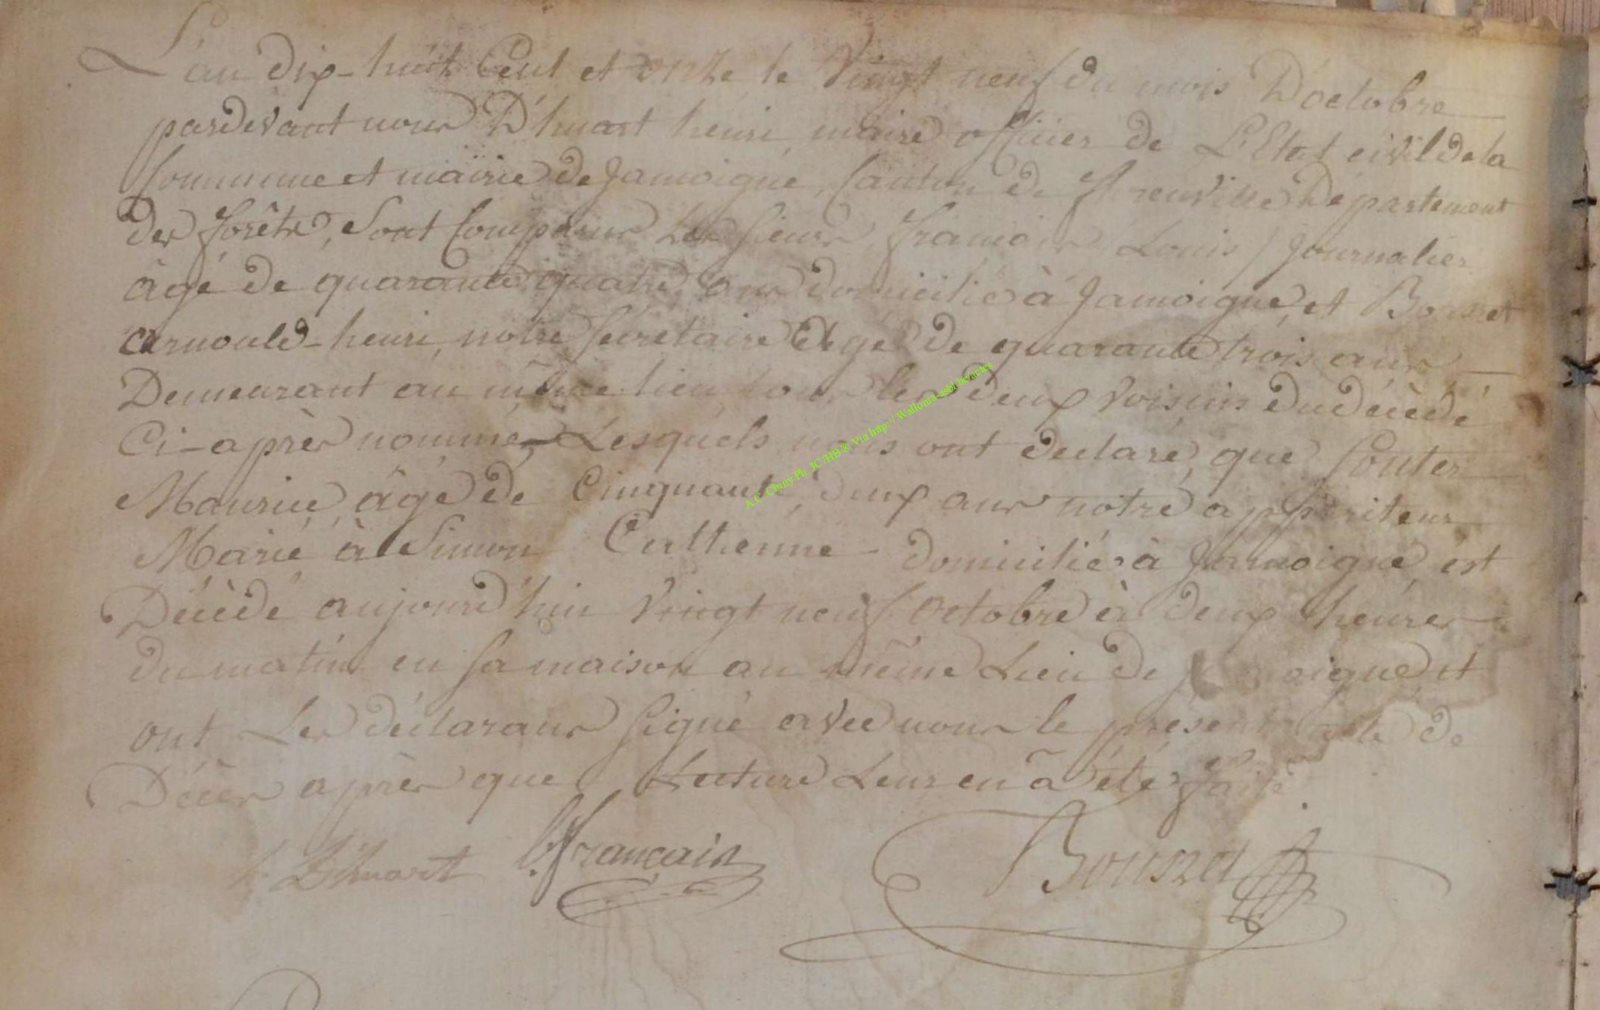 L'an dix-huit Cent et onze le Vingt neuf du mois D'octobre
pardevant nous D'huart henri, maire officier de L'Etat civil de la
Commune et mairie de Jamoigne, Canton de florenville Département
des forêts, sont Comparus Les sieurs français Louis journalier
âgé de quarante quatre ans domicilié à Jamoigne, et
arnould-henri, notre secretaire âgé de quarante trois ans
Demeurant au même lieu tous les deux voisins du décédé
Ci-après nommé, Lesquels nous ont declaré que
Maurice âgé de Cinquante deux ans notre appariteur
Marié à Simon Catherine domicilié à Jamoigne est
Décèdé aujourd'hui Vingt neuf octobre à deux heures
du matin en sa maison au même Lieu de Jamoigne et
ont Les déclarans signé avec nous le présent acte de
Décès après que Lecture Leur en a été faite
D'huart français